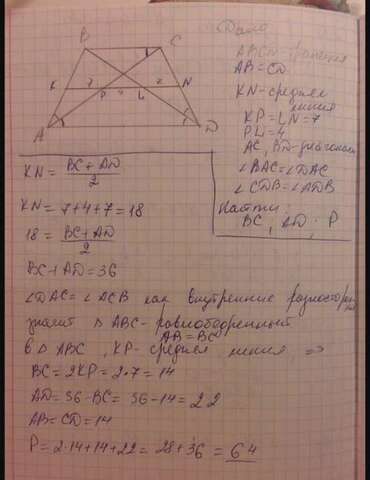 Дано
ABCD - трапеция
AB = CD
KN - средняя линия
KP = LN = 7
PL = 4
AC, BD - диагонали
∠BAC = ∠DAC
∠CDB = ∠ADB
Найти:
BC, AD, P
B C
K 7 4 7 N
P L
A D
KN = BC + AD / 2
KN = 7+4+7 = 18
18 = BC + AD / 2
BC + AD = 36
∠DAC = ∠ACB как внутренние разносторон
значит △ ABC - равнобедренный
AB = BC
в △ ABC, KP - средняя линия ⇒
BC = 2KP = 2·7 = 14
AD = 36 - BC = 36 - 14 = 22
AB = CD = 14
P = 2·14 + 14 + 22 = 28 + 36 = 64